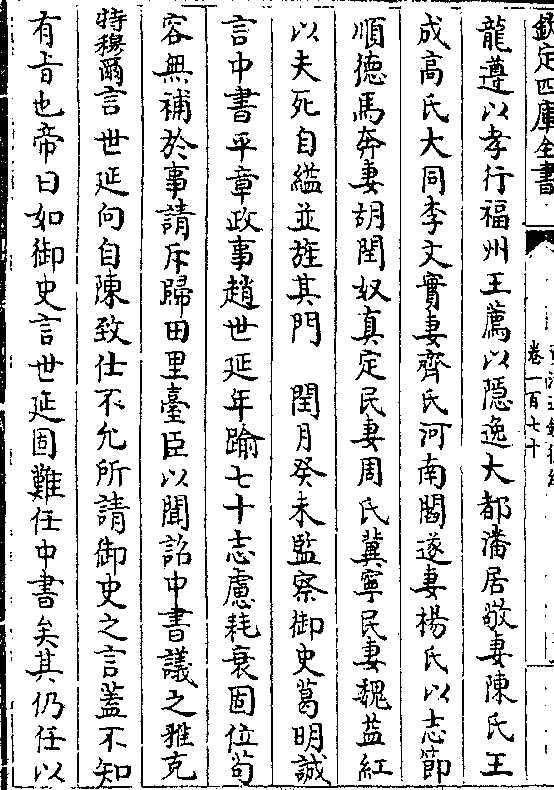 欽定四庫全書
卷一百七十
龍遵以孝行福州王薦以隱逸大都潘居敬妻陳氏王
成高氏大同李文實妻齊氏河南閻遂妻楊氏以志節
順德馬奔妻胡閏奴真定民妻周氏冀寧民妻魏益紅
以夫死自縊並旌其門　閏月癸未監察御史葛明誠
言中書平章政事趙世延年踰七十志慮耗衰固位茍
容無補於事請斥歸田里臺臣以聞詔中書議之雅克
特穆爾言世延向自陳致仕不允所請御史之言蓋不知
有旨也帝曰如御史言世延固難任中書矣其仍任以